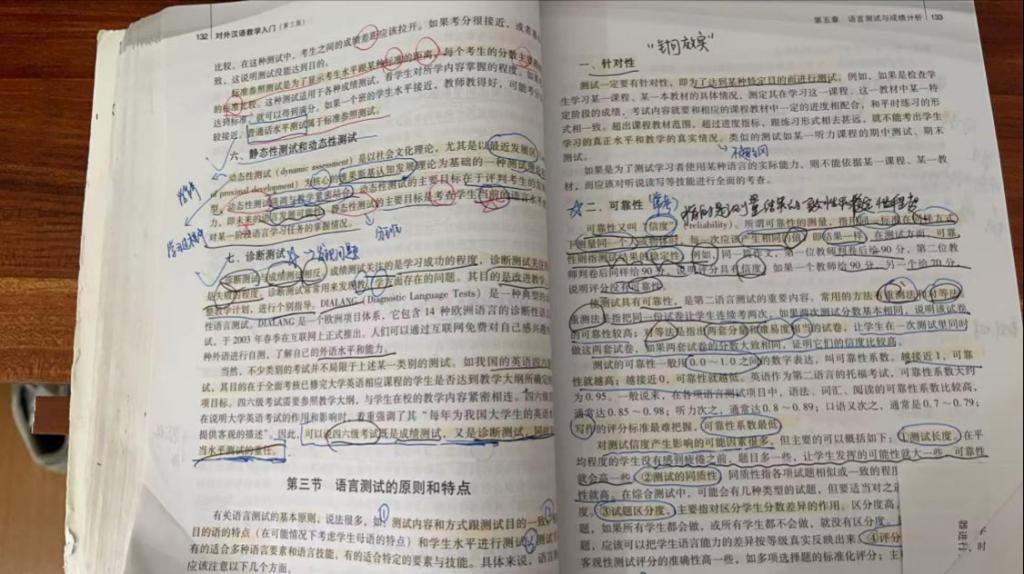 132 对外汉语教学入门（第三版）
比较。在这种测试中，考生之间的成绩差距应该拉开。如果考分很接近，或者
致，这说明测试没能达到目的。
标准参照测试是为了展示考生水平跟某种标准的距离，每个考生的分数主要
的标准比较。这种测试适用于各种成绩测试，看学生对所学内容掌握的程度。如果
达到标准，就可以得到满分。如果一个班的学生水平接近，教师教得好，可能考分
较接近。普通话水平测试属于标准参照测试。
六、静态性测试和动态性测试
动态性测试（dynamic assessment）是以社会文化理论，尤其是以最近发展区
of proximal development）为核心的维果斯基认知发展理论为基础的一种测试
型。动态性测试强调与教学紧密结合，动态性测试的主要目标在于评判考生的
力，即未来的语言发展可能性。静态性测试的主要目标是考查学生当前的语言水平
对某一阶段语言学习任务的掌握情况。
分班
学习过程中
七、诊断测试 → 发现问题
诊断测试与成绩测试相反。成绩测试关注的是学习成功的程度，诊断测试关注
是失败的程度。诊断测试常常用来发现教学方面存在的问题，其目的是改进教学
整教学计划，进行个别指导。DIALANG（Diagnostic Language Tests）是一种典型的
性语言测试。DIALANG 是一个欧洲项目体系，它包含 14 种欧洲语言的诊断性语
试，于 2003 年春季在互联网上正式推出，人们可以通过互联网免费对自己感兴趣
种外语进行自测，了解自己的外语水平和能力。
当然，不少类别的考试并不局限于上述某一类别的测试。如我国的英语四六
试，其目的在于全面考核已修完大学英语相应课程的学生是否达到教学大纲所确定
项目标。四六级考试需要参照教学大纲，与学生在校的教学内容紧密相连。四六级
在说明大学英语考试的作用和影响时，着重强调了其“每年为我国大学生的英语
提供客观的描述”。因此，可以说四六级考试既是成绩测试，又是诊断测试，同时
当水平测试的重任。
第三节 语言测试的原则和特点
①
有关语言测试的基本原则，说法很多，如：测试内容和方式跟测试目的一致
目的语的特点（在可能情况下考虑学生母语的特点）和学生水平进行测试
有的适合多种语言要素和语言技能，有的适合特定的要素与技能。具体来说，语言
应该注意以下几个方面。
第五章 语言测试与成绩计析 133
一、针对性
测试一定要有针对性，即为了达到某种特定目的而进行测试。例如，如果是检查学
生学习某一课程、某一本教材的具体情况，测定其在学习这一课程、这一教材中某一特
定阶段的成绩，考试内容就要和相应的课程教材中一定的进度相配合，和平时练习的形
式相一致。超出课程教材范围，超过进度指标，跟练习形式相去甚远，就不能考出学生
学习的真正水平和教学的真实情况。类似的测试如某一听力课程的期中测试、期末
测试。
如果是为了测试学习者使用某种语言的实际能力，则不能依据某一课程、某一教
材，而应该对听说读写等技能进行全面的考查。
二、可靠性
可靠性又叫信度（reliability）。所谓可靠性的测量，指用同一标准在同样方式
下测量同一个人或物体时，每一次应该产生相同的值，即结果一样。在测试方面，可靠
性则指测试结果的稳定性。例如，同一篇作文，第一位教师判卷后给90分，第二位教
师判卷后同样给 90 分，说明评分具有信度；如果一个教师给 90 分，另一个给 70 分，
说明评分没有可靠性。
使测试具有可靠性，是第二语言测试的重要内容。常用的方法有重测法和对等法。
重测法，指把同一份试卷让学生连续考两次，如果两次测试分数基本相同，说明该试卷
的可靠性较高；对等法是指出两套分量和难易度相当的试卷，让学生在一次测试里同时
做这两套试卷，如果两套试卷的分数大致相同，证明它们的信度比较高。
测试的可靠性一般用 0.0～1.0 之间的数字表达，叫可靠性系数，越接近1，可靠
性就越高；越接近0，可靠性就越低。英语作为第二语言的托福考试，可靠性系数大约
为 0.95。一般说来，在各项语言测试项目中，语法、词汇、阅读的可靠性系数比较高，
通常达 0.85～0.98；听力次之，通常达 0.8～0.89；口语又次之，通常是 0.7～0.79；
写作的评分标准最难把握，可靠性系数最低。
对测试信度产生影响的可能因素很多，但主要的可以概括如下：①测试长度。在平
均程度的学生没有感到疲倦之前，题目多一些，让学生发挥的可能性就大一些，可靠性
就会高一些。②测试的同质性。同质性指各项试题相似或一致的程
性就高。在综合测试中，可能会有几种类型的试题，但要适当对之
度。③试题区分度。主要指对区分学生分数差异的作用。区分度高
题，如果所有学生都会做，或所有学生都不会做，就没有区分度。
题，应该可以把学生语言能力的差异按等级真实反映出来。④评分
客观性测试评分的准确性高一些，如多项选择题的标准化评分；主